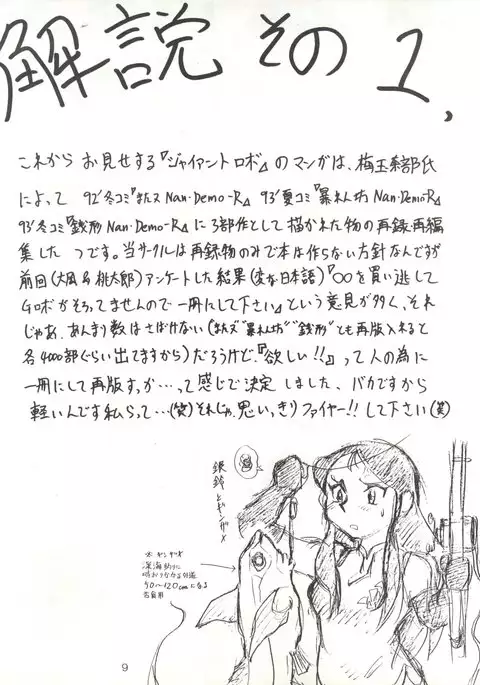 解説その1,
これから お見せする『ジャイアントロボ』のマンガは、梅玉系部氏
によって 92'冬コミ『またズNan-Demo-R』 93'夏コミ『暴れん坊Nan-Demo-R』
93'冬コミ『銭形Nan-Demo-R』に3部作として描かれた物の再録・再編
集した つです。当サークルは再録物のみで本は作らない方針なんですが
前回(大風呂桃太郎)アンケートした結果(変な日本語)『〇〇を買い逃して
Gロボがそろってませんので一冊にして下さい』という意見が多く、それ
じゃあ、あんまり数はさばけない(またズ"暴れん坊""銭形"とも再版入れると
各4000部ぐらい出てますから)だろうけど、『欲しい!!』って人の為に
一冊にして再版すっか…って感じで決定しました、バカですから
軽いんです私らって…(笑)それじゃ、思いっきりファイヤー!!して下さい(笑)
銀鈴とギンザメ
ギンザメ
深海釣りに
時おりかかる外道
90〜120cmになる
9